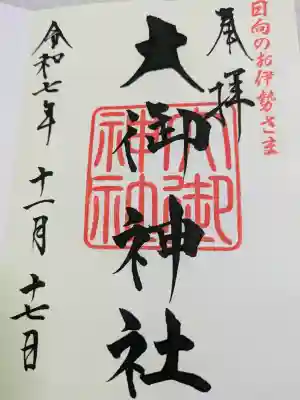 日向のお伊勢さま
奉拝
大御神社
大御
神社
令和七年 十一月 十七日